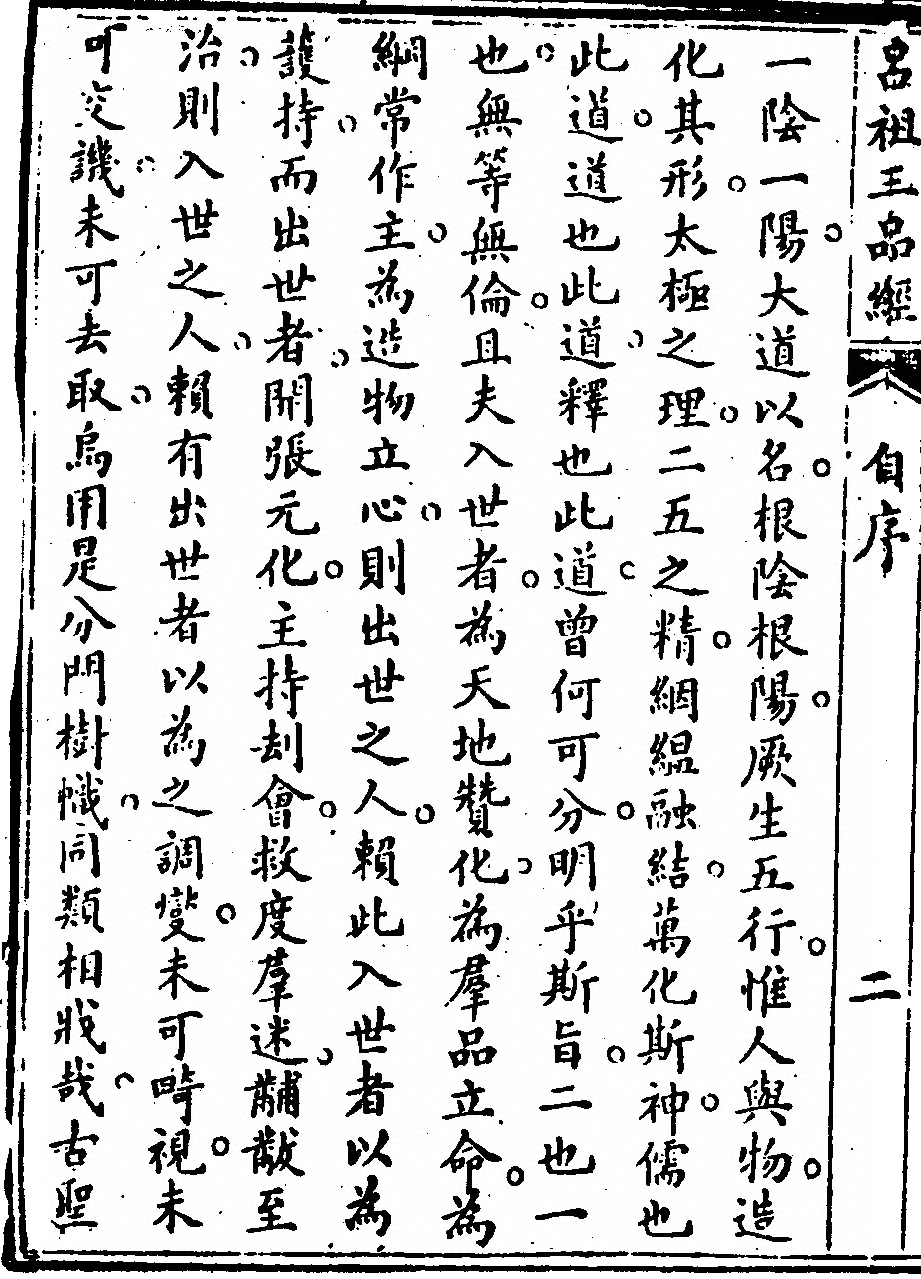 呂祖王品經 自序 二
一陰一陽。大道以名。根陰根陽。厥生五行。惟人與物。造
化其形。太極之理。二五之精。絪縕融結。萬化斯神。儒也
此道。道也此道。釋也此道。曾何可分。明乎斯旨。二也一
也。無等無倫。且夫入世者。為天地贊化。為羣品立命。為
綱常作主。為造物立心。則出世之人。賴此入世者以為
護持。而出世者。開張元化。主持刦會。救度羣迷。黼黻至
治。則入世之人。賴有出世者以為之調燮。未可畸視。未
可交譏。未可去取。烏用是分門樹幟。同類相戕哉。古聖